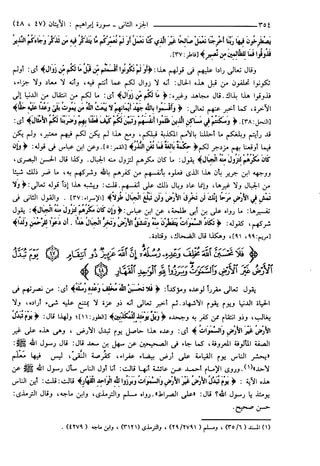 ٣٥٤ الجزء الثاني ـ سورة إبراهيم : الآيتان (٤٧ ، ٤٨)
يَصْطَرِخُونَ فِيهَا رَبَّنَا أَخْرِجْنَا نَعْمَلْ صَالِحًا غَيْرَ الَّذِي كُنَّا نَعْمَلُ أَوَلَمْ نُعَمِّرْكُم مَّا يَتَذَكَّرُ فِيهِ مَن تَذَكَّرَ وَجَاءَكُمُ النَّذِيرُ
فَذُوقُوا فَمَا لِلظَّالِمِينَ مِن نَّصِيرٍ﴾ [فاطر: ٣٧].
وقال تعالى راداً عليهم في قولهم هذا: ﴿أَوَلَمْ تَكُونُوا أَقْسَمْتُم مِّن قَبْلُ مَا لَكُم مِّن زَوَالٍ﴾ أي: أولم
تكونوا تحلفون من قبل هذه الحال: أنه لا زوال لكم عما أنتم فيه، وأنه لا معاد ولا جزاء،
فذوقوا هذا بذلك. قال مجاهد وغيره: ﴿مَا لَكُم مِّن زَوَالٍ﴾ أي: ما لكم من انتقال من الدنيا إلى
الآخرة، كما أخبر عنهم تعالى: ﴿وَأَقْسَمُوا بِاللَّهِ جَهْدَ أَيْمَانِهِمْ لَا يَبْعَثُ اللَّهُ مَن يَمُوتُ بَلَىٰ وَعْدًا عَلَيْهِ حَقًّا﴾
[النحل: ٣٨]. ﴿وَسَكَنتُمْ فِي مَسَاكِنِ الَّذِينَ ظَلَمُوا أَنفُسَهُمْ وَتَبَيَّنَ لَكُمْ كَيْفَ فَعَلْنَا بِهِمْ وَضَرَبْنَا لَكُمُ الْأَمْثَالَ﴾ أي:
قد رأيتم وبلغكم ما أحللنا بالأمم المكذبة قبلكم، ومع هذا لم يكن لكم فيهم معتبر، ولم يكن
فيما أوقعنا بهم مزدجر لكم ﴿حِكْمَةٌ بَالِغَةٌ فَمَا تُغْنِ النُّذُرُ﴾ [القمر: ٥]. وعن ابن عباس في قوله: ﴿وَإِن
كَانَ مَكْرُهُمْ لِتَزُولَ مِنْهُ الْجِبَالُ﴾ يقول: ما كان مكرهم لتزول منه الجبال. وكذا قال الحسن البصري،
ووجهه ابن جرير بأن هذا الذي فعلوه بأنفسهم من كفرهم بالله وشركهم به، ما ضر ذلك شيئاً
من الجبال ولا غيرها، وإنما عاد وبال ذلك على أنفسهم. قلت: ويشبه هذا إذاً قوله تعالى: ﴿وَلَا
تَمْشِ فِي الْأَرْضِ مَرَحًا إِنَّكَ لَن تَخْرِقَ الْأَرْضَ وَلَن تَبْلُغَ الْجِبَالَ طُولًا﴾ [الإسراء: ٣٧] . والقول الثاني في
تفسيرها: ما رواه علي بن أبي طلحة، عن ابن عباس: ﴿وَإِن كَانَ مَكْرُهُمْ لِتَزُولَ مِنْهُ الْجِبَالُ﴾: يقول
شركهم، كقوله: ﴿تَكَادُ السَّمَاوَاتُ يَتَفَطَّرْنَ مِنْهُ وَتَنشَقُّ الْأَرْضُ وَتَخِرُّ الْجِبَالُ هَدًّا . أَن دَعَوْا لِلرَّحْمَٰنِ وَلَدًا﴾
[مريم: ٩٠، ٩١]، وهكذا قال الضحاك، وقتادة.
﴿فَلَا تَحْسَبَنَّ اللَّهَ مُخْلِفَ وَعْدِهِ رُسُلَهُ إِنَّ اللَّهَ عَزِيزٌ ذُو انتِقَامٍ ﴿٤٧﴾ يَوْمَ تُبَدَّلُ
الْأَرْضُ غَيْرَ الْأَرْضِ وَالسَّمَاوَاتُ وَبَرَزُوا لِلَّهِ الْوَاحِدِ الْقَهَّارِ ﴿٤٨﴾
يقول تعالى مقرراً لوعده ومؤكداً: ﴿فَلَا تَحْسَبَنَّ اللَّهَ مُخْلِفَ وَعْدِهِ رُسُلَهُ﴾ أي: من نصرتهم في
الحياة الدنيا ويوم يقوم الأشهاد. ثم أخبر تعالى أنه ذو عزة لا يمتنع عليه شيء أراده، ولا
يغالب، وذو انتقام ممن كفر به وجحده ﴿وَيْلٌ يَوْمَئِذٍ لِّلْمُكَذِّبِينَ﴾ [الطور: ١١]؛ ولهذا قال: ﴿يَوْمَ تُبَدَّلُ
الْأَرْضُ غَيْرَ الْأَرْضِ وَالسَّمَاوَاتُ﴾ أي: وعده هذا حاصل يوم تبدل الأرض ، وهي هذه على غير
الصفة المألوفة المعروفة، كما جاء في الصحيحين عن سهل بن سعد قال: قال رسول الله ﷺ:
«يحشر الناس يوم القيامة على أرض بيضاء عفراء، كقرصة النَّقيّ، ليس فيها معلم
لأحد»، وروى الإمام أحمد عن عائشة أنها قالت: أنا أول الناس سأل رسول الله ﷺ عن
هذه الآية: ﴿يَوْمَ تُبَدَّلُ الْأَرْضُ غَيْرَ الْأَرْضِ وَالسَّمَاوَاتُ وَبَرَزُوا لِلَّهِ الْوَاحِدِ الْقَهَّارِ﴾ قالت: قلت: أين الناس
يومئذ يا رسول الله؟ قال: «على الصراط». رواه مسلم والترمذي، وابن ماجه، وقال الترمذي:
حسن صحيح.
(١) المسند (٣٥/٦) ، ومسلم (٢٩/٢٧٩١) ، والترمذي (٣١٢١) ، وابن ماجه (٤٢٧٩) .